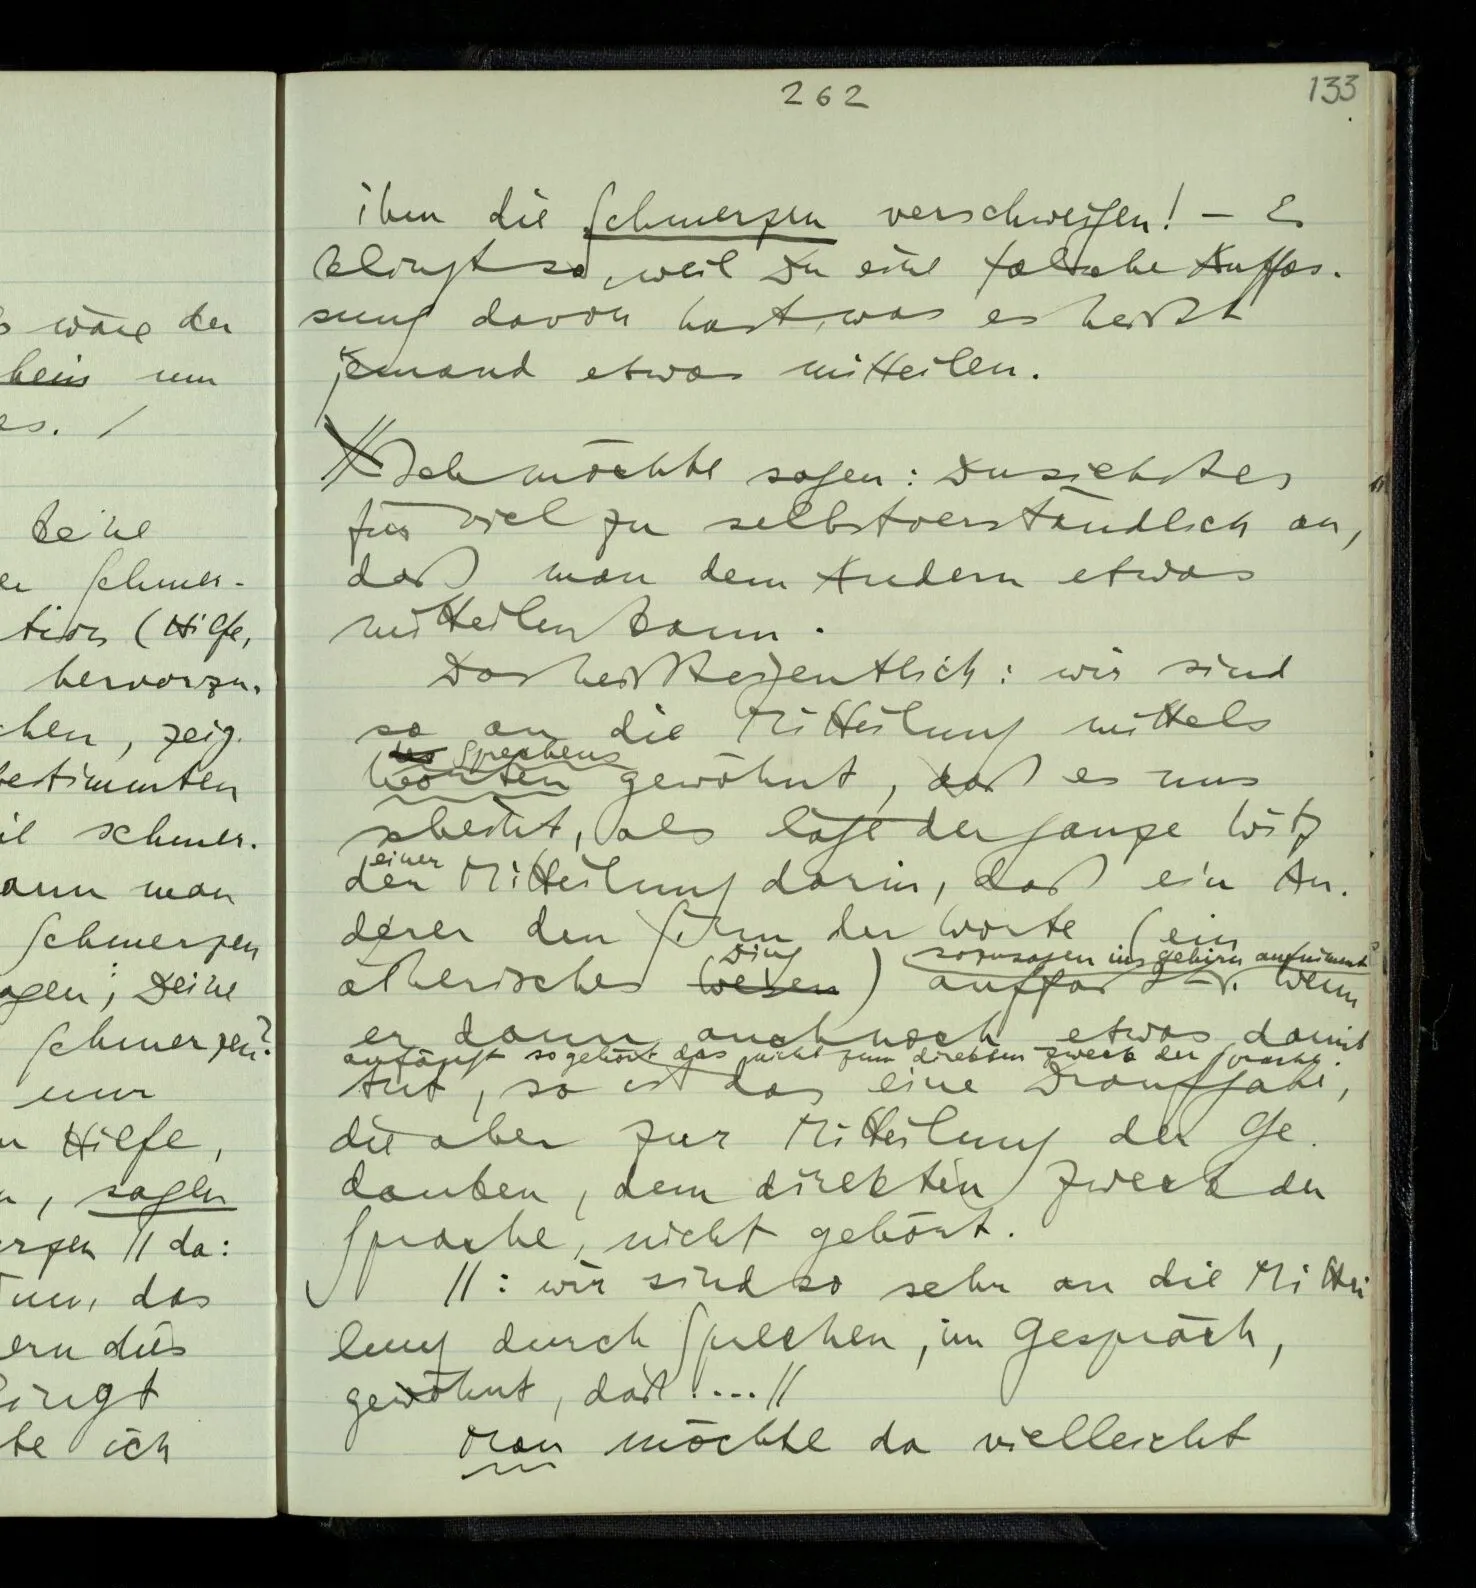 s wäre der
um
es. /
keine
er Schmer-
tion (Hilfe,
hervorzu-
chen, zeig.
bestimmten
il schmer-
ann man
Schmerzen
agen; Deine
Schmerzen?
nur
n Hilfe,
n, sagen
erzen // da:
das
ern dies
lingt
te ich
262
133
ihm die Schmerzen verschweigen! – Es
klingt so, weil Du eine falsche Auffas-
sung davon hast, was es heißt
jemand etwas mitteilen.
// Ich möchte sagen: Du siehst es
für viel zu selbstverständlich an,
daß man dem Andern etwas
mitteilen kann.
Das heißt eigentlich: wir sind
so an die Mitteilung mittels
des Sprechens
Worten gewöhnt, daß es uns
scheint, als läge der ganze Witz
einer
der Mitteilung darin, daß ein An-
derer den Sinn der Worte (ein
Ding sozusagen ins Gehirn aufnimmt
ätherisches Wesen) auffaßt. Wenn
er dann auch noch etwas damit
anfängt so gehört das nicht zum direkten Zweck der Sprache.
tut, so ist das eine Draufgabe,
die aber zur Mitteilung der Ge-
danken, dem direkten Zweck der
Sprache, nicht gehört.
//: wir sind so sehr an die Mittei
lung durch Sprechen, im Gespräch,
gewöhnt, daß .... //
Man möchte da vielleicht